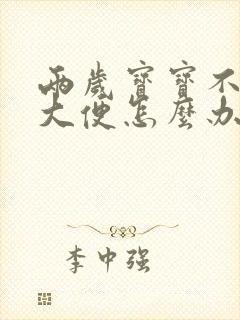 兩歲寶寶不
大便怎麼办
李中强